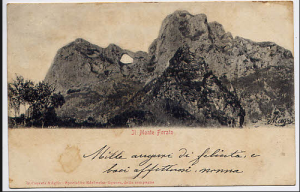 Il Monte Forato.
Mille auguri di felicità, e
baci affettuosi. nonna